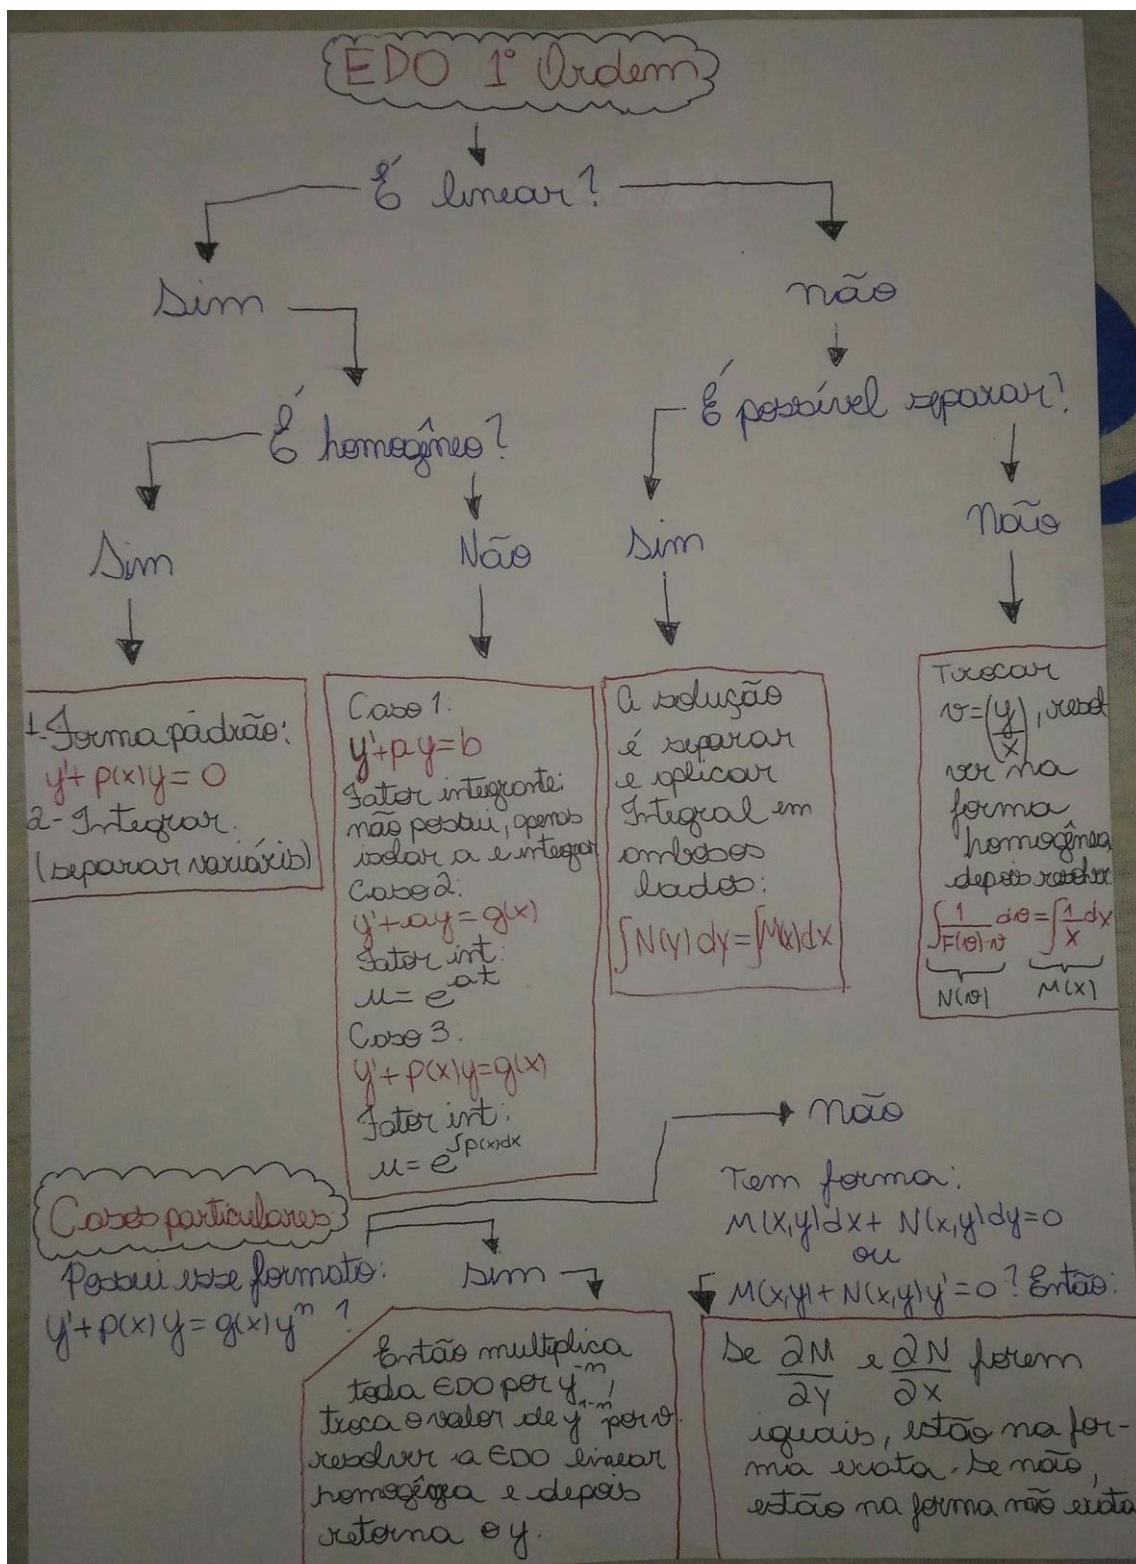 EDO 1° Ordem
É linear?
Sim
não
É homogêneo?
É possível separar?
Sim
Não
Sim
Não
1- Forma pádrão:
y'+ p(x)y = 0
2- Integrar.
(separar variávis)
Caso 1:
y'+py=b
Fator integrante:
não possui, apenas
isolar a e integrar
Caso 2:
y'+ay=g(x)
Fator int:
μ= e^at
Caso 3:
y'+p(x)y=g(x)
Fator int:
μ= e^∫p(x)dx
A solução
é separar
e aplicar
Integral em
ambosos
lados:
∫N(y)dy=∫M(x)dx
Trocar
v=(y/x), resol
ver na
forma
homogênea
depois resolver
∫1/F(v)-v dv=∫1/x dx
N(v) M(x)
Casos particulares:
Possui esse formato:
y'+p(x)y=g(x)y^n ?
não
sim
Então multiplica
toda EDO por y^-n,
troca o valor de y^1-n por v.
resolver a EDO linear
homogênea e depois
retorna o y.
Tem forma:
M(x,y)dx+ N(x,y)dy=0
ou
M(x,y)+N(x,y)y'=0? Então:
Se ∂M/∂y e ∂N/∂x forem
iguais, estão na for-
ma exata. Se não,
estão na forma não exata